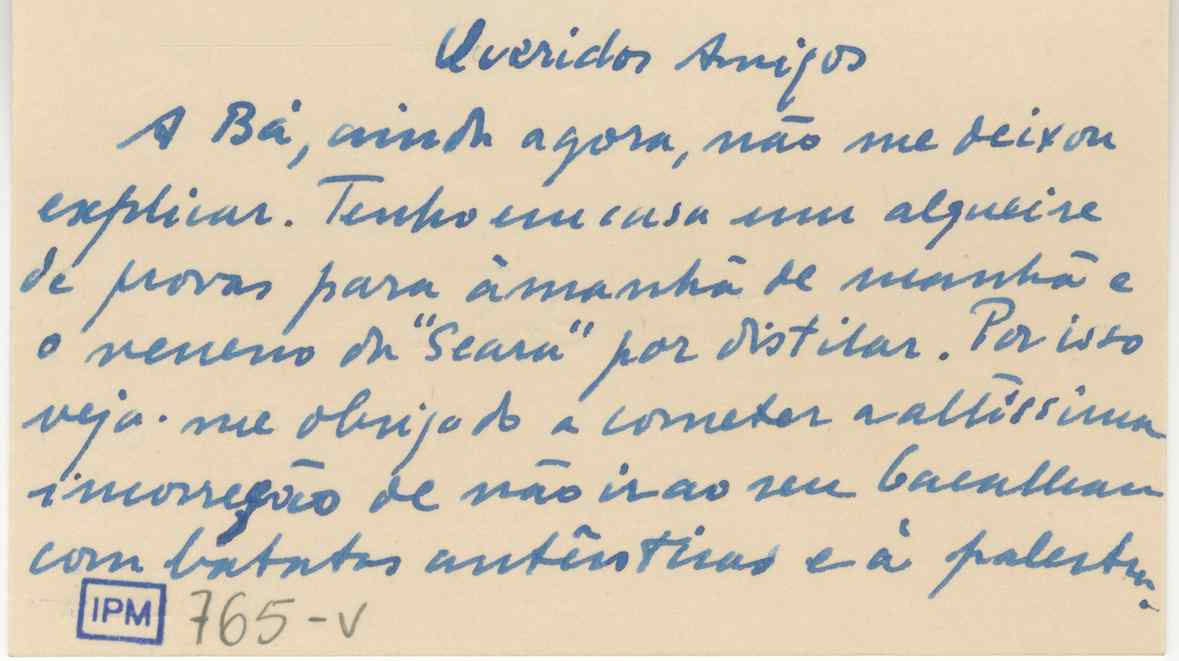 Queridos Amigos
A Bá, ainda agora, não me deixou
explicar. Tenho em casa um alqueire
de provas para àmanhã de manhã e
o veneno da "Seara" por distilar. Por isso
vejo-me obrigado a cometer a altíssima
incorreção de não ir ao seu bacalhau
com batatas autênticas e à palestra.
IPM 765-V